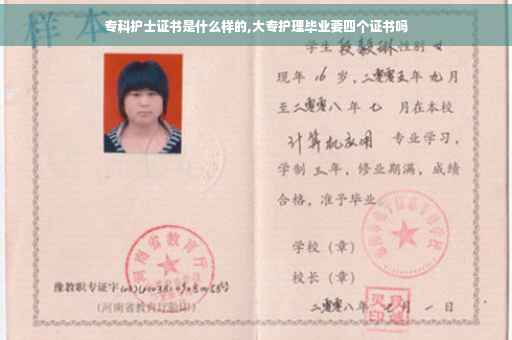 专科护士证书是什么样的,大专护理毕业要四个证书吗
样本
学生 段毅琳 性别 女
现年 16 岁,二零零五年 九 月
至二零零八 年 七 月在本校
计算机应用 专业学习,
学制 三 年,修业期满,成绩
合格,准予毕业
学校(章)
校长(章)
二零零八年 七 月 一 日
河南省教育厅
豫教职专证字
(河南省教育厅验印)